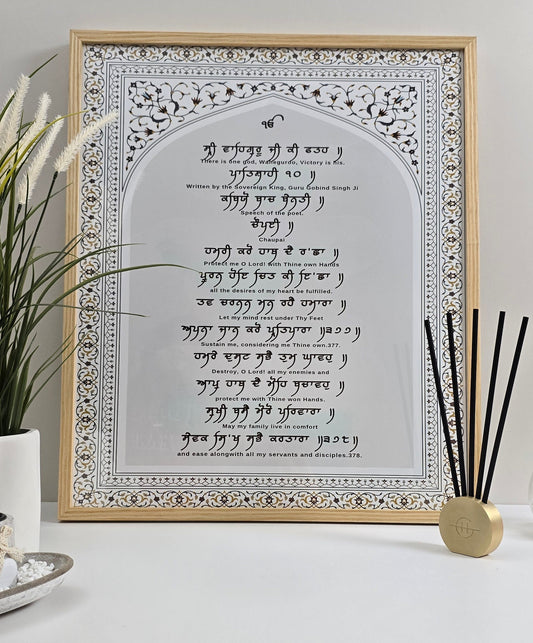 ੴ
ਸ੍ਰੀ ਵਾਹਿਗੁਰੂ ਜੀ ਕੀ ਫਤਹ ॥
There is one god, Waheguroo, Victory is his.
ਪਾਤਿਸ਼ਾਹੀ ੧੦ ॥
Written by the Sovereign King, Guru Gobind Singh Ji
ਕਬਿਯੋ ਬਾਚ ਬੇਨਤੀ ॥
Speech of the poet.
ਚੌਪਈ ॥
Chaupai
ਹਮਰੀ ਕਰੋ ਹਾਥ ਦੈ ਰੱਛਾ ॥
Protect me O Lord! with Thine own Hands
ਪੂਰਨ ਹੋਇ ਚਿਤ ਕੀ ਇੱਛਾ ॥
all the desires of my heart be fulfilled.
ਤਵ ਚਰਨਨ ਮਨ ਰਹੈ ਹਮਾਰਾ ॥
Let my mind rest under Thy Feet
ਅਪਨਾ ਜਾਨ ਕਰੋ ਪ੍ਰਤਿਪਾਰਾ ॥੩੭੭॥
Sustain me, considering me Thine own.377.
ਹਮਰੇ ਦੁਸਟ ਸਭੈ ਤੁਮ ਘਾਵਹੁ ॥
Destroy, O Lord! all my enemies and
ਆਪੁ ਹਾਥ ਦੈ ਮੋਹਿ ਬਚਾਵਹੁ ॥
protect me with Thine won Hands.
ਸੁਖੀ ਬਸੈ ਮੋਰੋ ਪਰਿਵਾਰਾ ॥
May my family live in comfort
ਸੇਵਕ ਸਿੱਖ ਸਭੈ ਕਰਤਾਰਾ ॥੩੭੮॥
and ease alongwith all my servants and disciples.378.